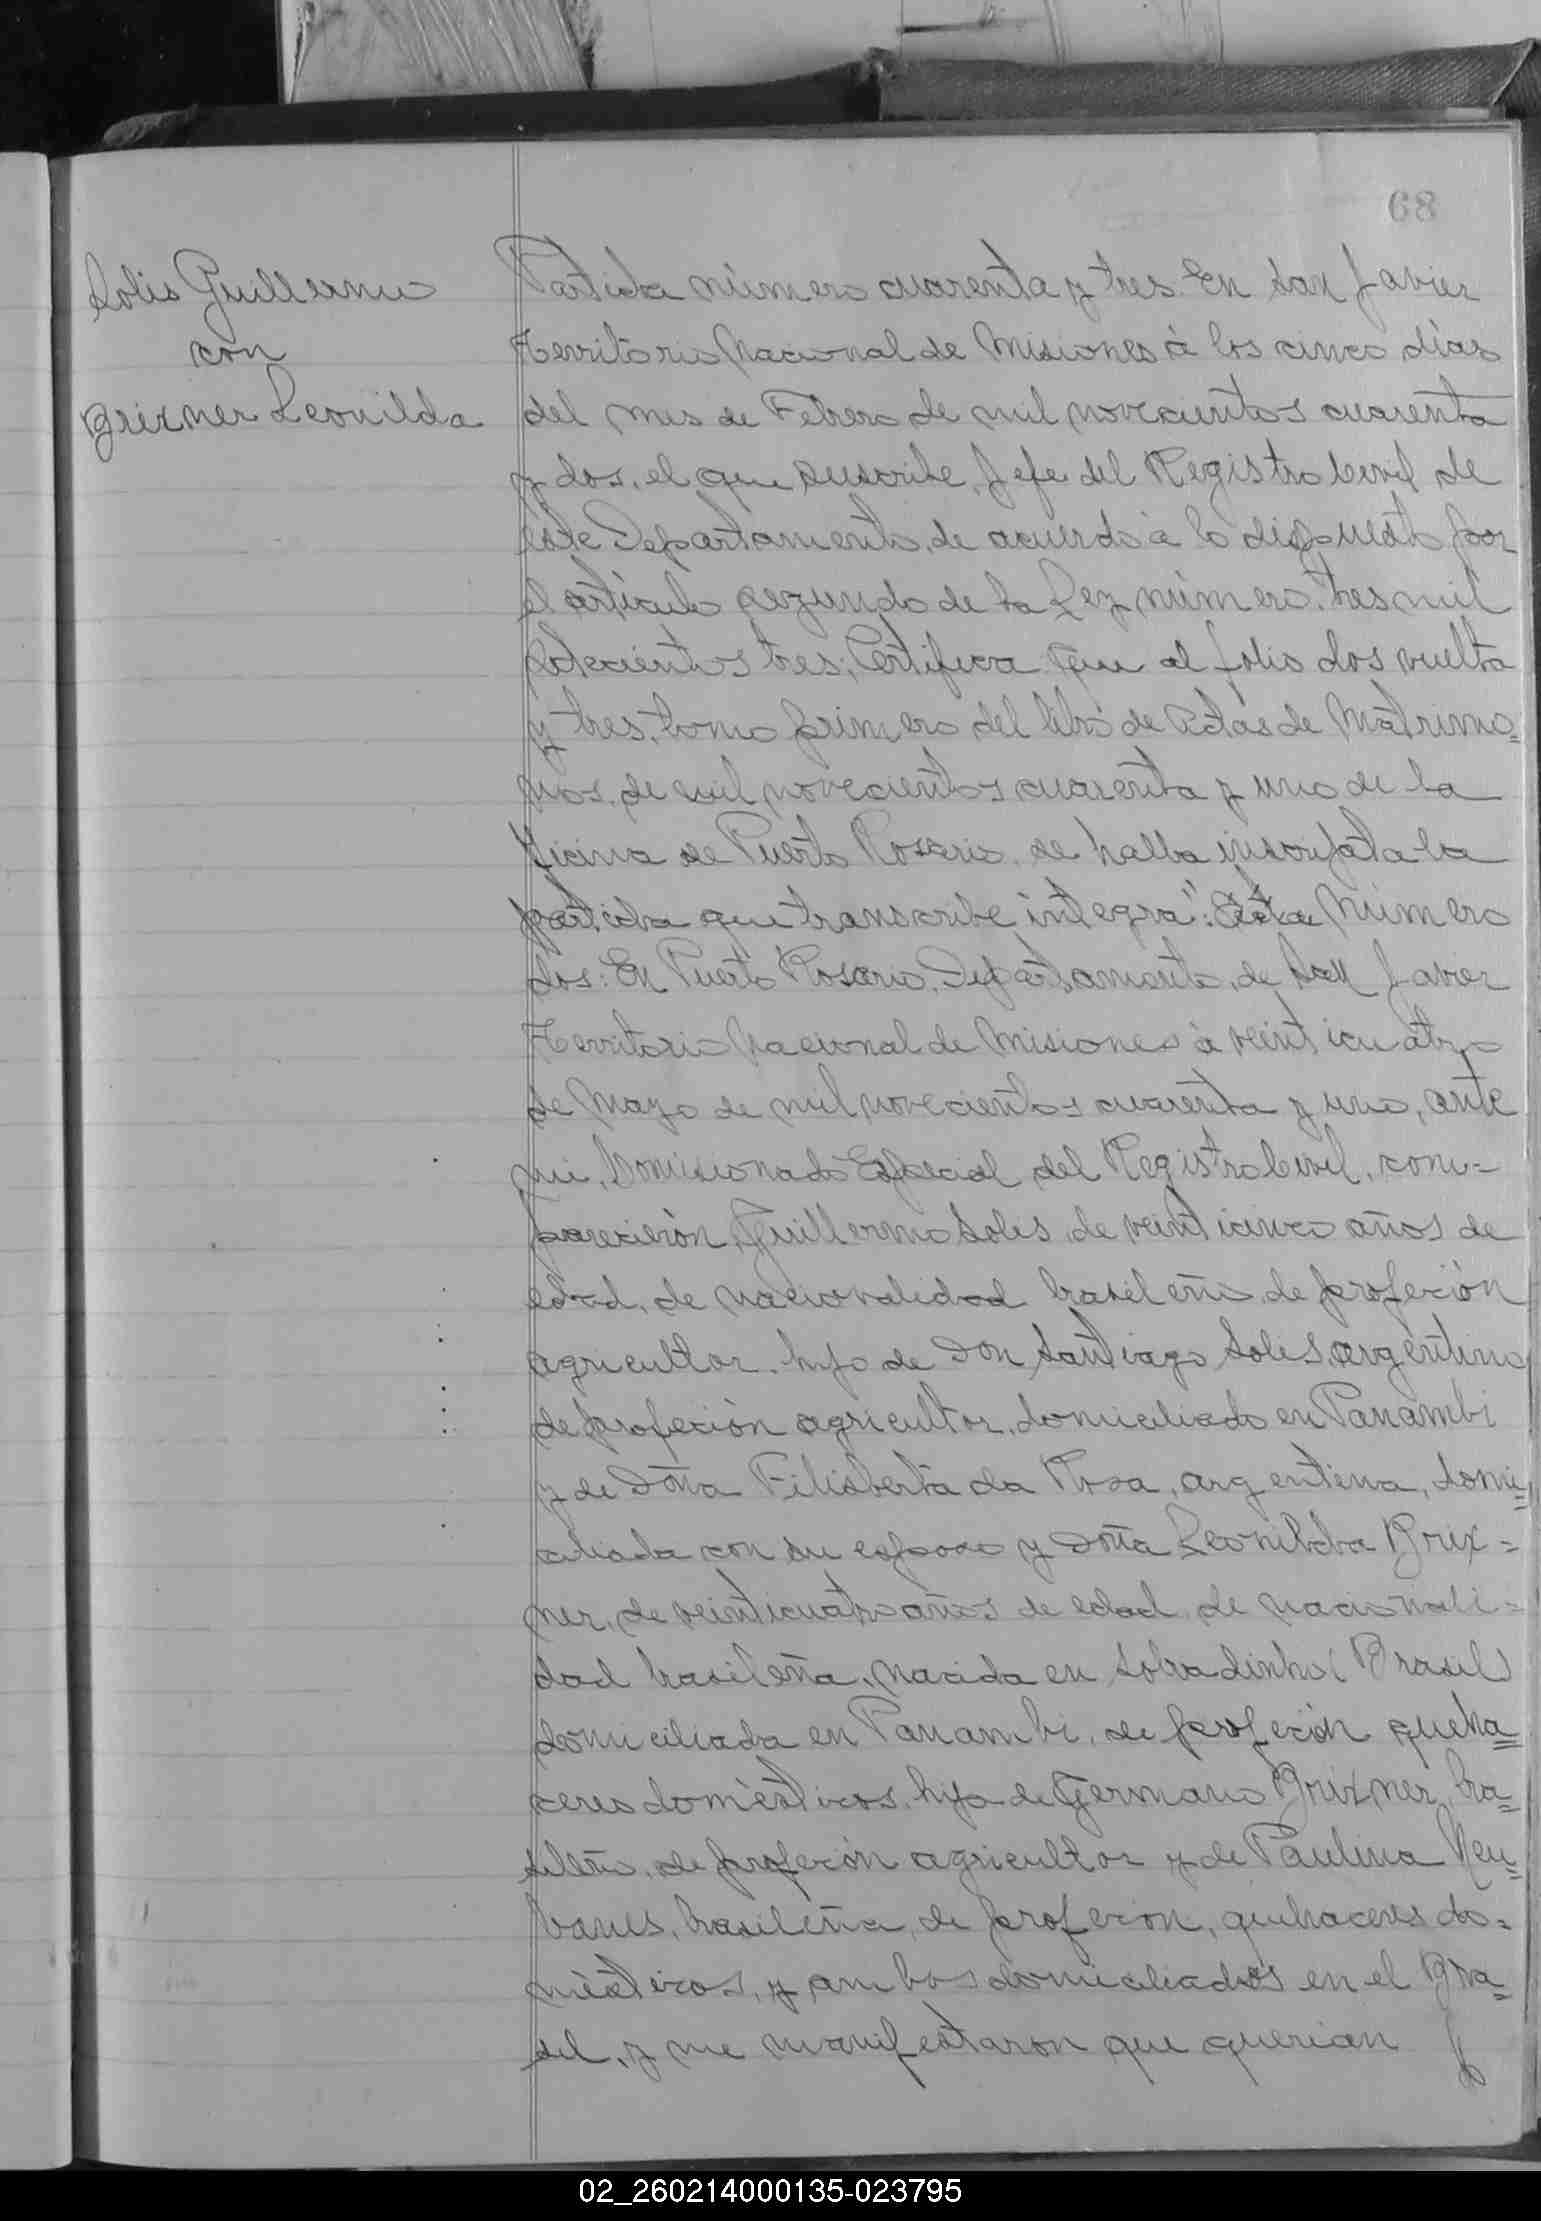 68
Solis Guillermo
con
Brixner Leonilda
Partida número cuarenta y tres. En San Javier
Territorio Nacional de Misiones à los cinco dìas
del mes de Febrero de mil novecientos cuarenta
y dos, el que suscribe, Jefe del Registro Civil de
èste Departamento, de acuerdo à lo dispuesto por
el artìculo segundo de la Ley número tres mil
setecientos tres; Certifica que al folio dos vuelta
y tres, tomo primero del libro de Actas de Matrimo=
nios, de mil novecientos cuarenta y uno de la
oficina de Puerto Rosario, se halla inscripta la
partida que transcribe integra": Acta Número
dos: En Puerto Rosario, Departamento, de San Javier
Territorio Nacional de Misiones à veinticuatro
de Mayo de mil novecientos cuarenta y uno, ante
mi, Comisionado Especial del Registro Civil, com=
parecieròn, Guillermo Soles, de veinticinco años de
edad, de nacionalidad brasileño, de profeciòn
agricultor, hijo de Don Santiago Soles, argentino
de profeciòn agricultor, domiciliado en Panambi
y de Doña Filisberta da Rosa, argentina, domi=
ciliada con su esposo y Doña Leonilda Brix=
ner, de veinticuatro años de edad, de nacionali=
dad brasileña, nacida en Sobradinho (Brasil)
domiciliada en Panambi, de profeciòn queha=
ceres domèsticos, hija de Germano Brixner, bra=
sileño, de profeciòn agricultor y de Paulina Neu=
banes, brasileña, de profecion, quehaceres do=
mèsticos, y ambos domiciliados en el Bra=
sil, y me manifestaron que querian
02_260214000135-023795